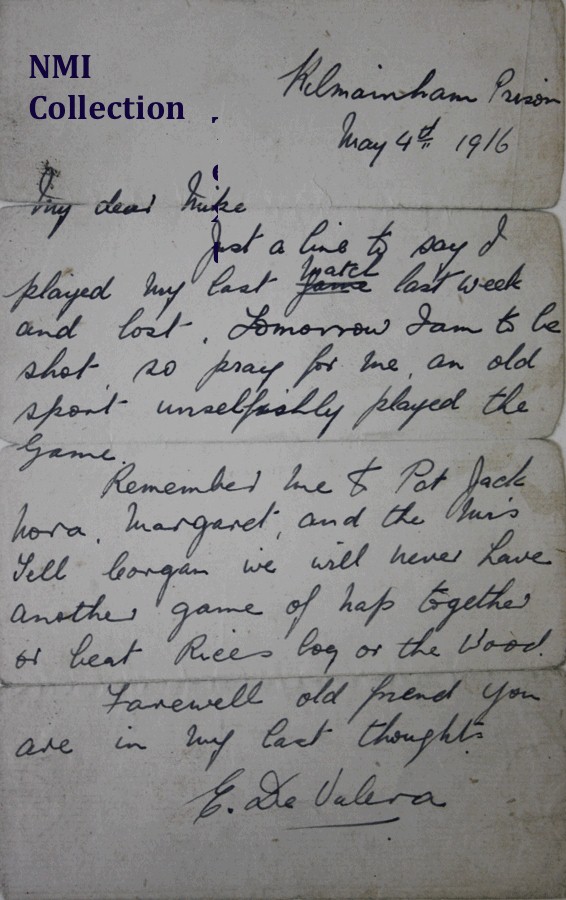 NMI
Collection
Kilmainham Prison
May 4th 1916
My dear Mike
Just a line to say I
played my last match game last week
and lost. Tomorrow I am to be
shot, so pray for me, an old
sport unselfishly played the
Game.
Remember me to Pat Jack
Nora, Margaret, and the Mrs
Tell Gorgan we will never have
another game of nap together
or beat Rices bog or the Wood.
Farewell old friend you
are in my last thoughts
E. De Valera